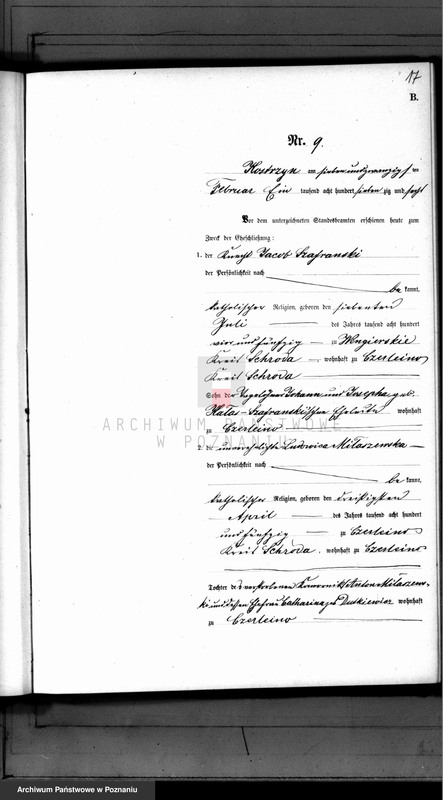 17
B.
Nr. 9.
Kostrzyn am sieben und zwanzigsten
Februar Ein tausend acht hundert sieben zig und sechs
Vor dem unterzeichneten Standesbeamten erschienen heute zum
Zweck der Eheschließung:
1. der Knecht Jacob Szafranski
der Persönlichkeit nach
be kannt,
katholischer Religion, geboren den siebenten
Juli des Jahres tausend acht hundert
vier und fünfzig zu Wengierskie
Kreis Schroda, wohnhaft zu Czerleino
Kreis Schroda
Sohn der Tagelöhner Johann und Josepha geb.
Szafranskischen Eheleute wohnhaft
zu Czerleino
2. die unverehelichte Ludowica Milaszewska
der Persönlichkeit nach
be kannt,
katholischer Religion, geboren den dreißigsten
April des Jahres tausend acht hundert
und fünfzig zu Czerleino
Kreis Schroda, wohnhaft zu Czerleino
Tochter des verstorbenen Komornik Anton Milaszew-
ski und dessen Ehefrau Catharina geb. Duskiewicz wohnhaft
zu Czerleino
ARCHIWUM PAŃSTWOWE
W POZNANIU
Archiwum Państwowe w Poznaniu